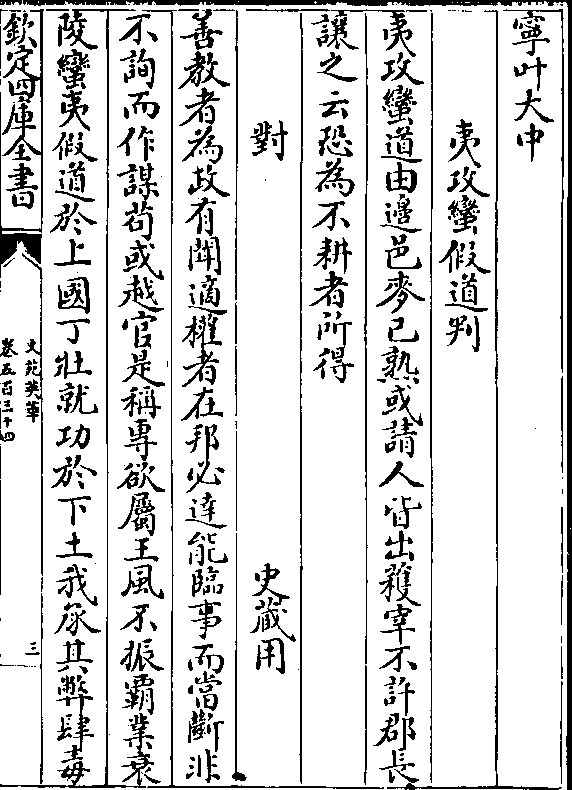 寧叶大中
夷攻蠻假道判
夷攻蠻道由邊邑麥已熟或請人皆出穫宰不許郡長
讓之云恐為不耕者所得
對 史藏用
善教者為政有聞適權者在邦必達能臨事而當斷非
不詢而作謀苟或越官是稱專欲屬王風不振霸業衰
陵蠻夷假道於上國丁壯就功於下土我俗其弊肆毒
欽定四庫全書
文苑英華
卷五百三十四
三